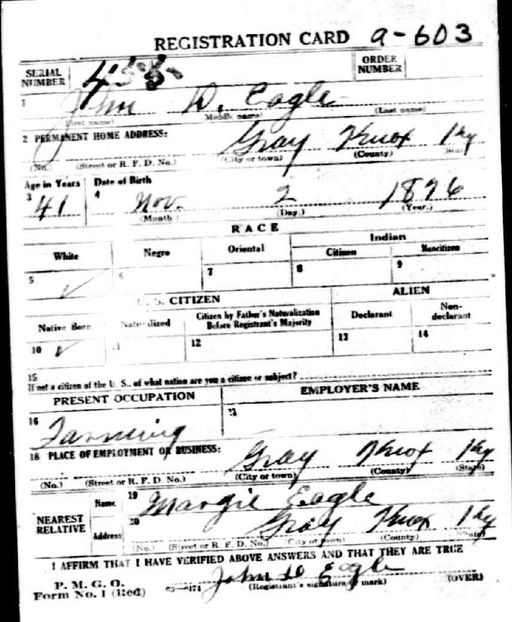 REGISTRATION CARD 9-603
SERIAL NUMBER 458 ORDER NUMBER
1 John D. Eagle
(First name) (Middle name) (Last name)
2 PERMANENT HOME ADDRESS:
Gray Knox Ky
(No.) (Street or R. F. D. No.) (City or town) (County) (State)
Age in Years Date of Birth
3 41 4 Nov. 2 1876
(Month) (Day.) (Year.)
RACE
White Negro Oriental Indian
Citizen Noncitizen
5 ✓ 6 7 8 9
U. S. CITIZEN ALIEN
Native Born Naturalized Citizen by Father's Naturalization Before Registrant's Majority Declarant Non-declarant
10 ✓ 11 12 13 14
15
If not a citizen of the U. S., of what nation are you a citizen or subject?
PRESENT OCCUPATION EMPLOYER'S NAME
16 Farming
18 PLACE OF EMPLOYMENT OR BUSINESS:
Gray Knox Ky
(No.) (Street or R. F. D. No.) (City or town) (County) (State)
NEAREST RELATIVE Name 19 Margie Eagle
Address 20 Gray Knox Ky
(No.) (Street or R. F. D. No.) (City or town) (County) (State)
I AFFIRM THAT I HAVE VERIFIED ABOVE ANSWERS AND THAT THEY ARE TRUE
P. M. G. O.
Form No. 1 (Red) John D Eagle
(Registrant's signature or mark) (OVER)